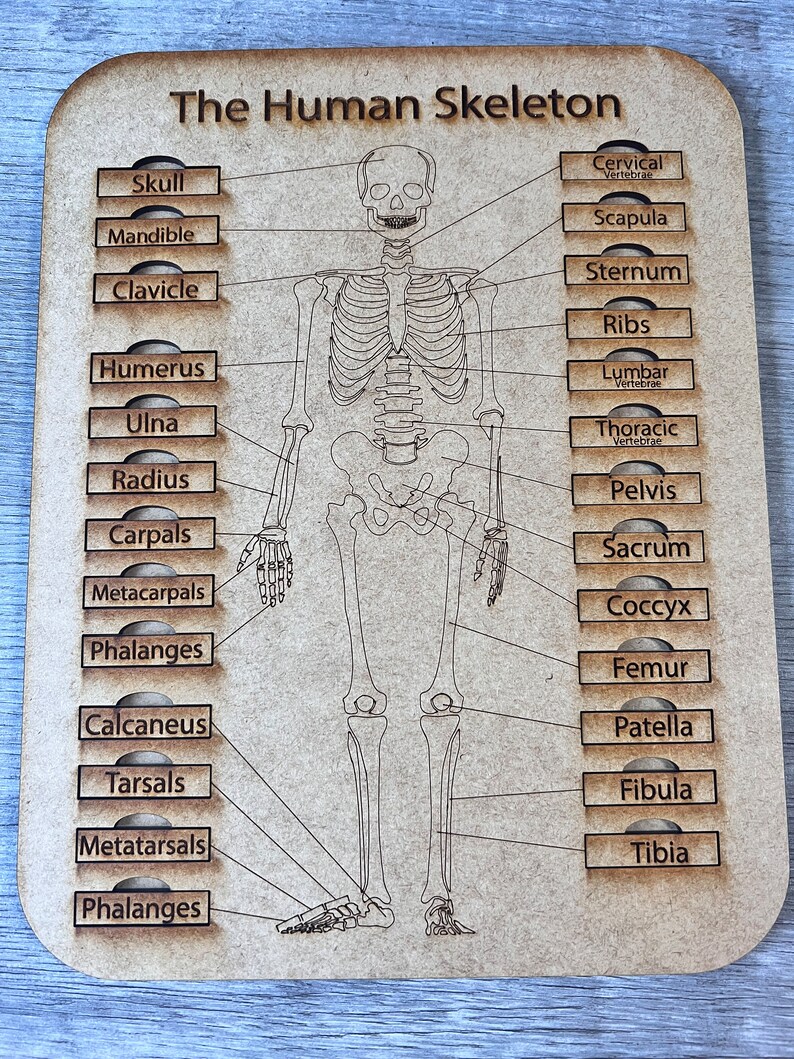 The Human Skeleton
Skull
Mandible
Clavicle
Humerus
Ulna
Radius
Carpals
Metacarpals
Phalanges
Calcaneus
Tarsals
Metatarsals
Phalanges
Cervical
Vertebrae
Scapula
Sternum
Ribs
Lumbar
Vertebrae
Thoracic
Vertebrae
Pelvis
Sacrum
Coccyx
Femur
Patella
Fibula
Tibia